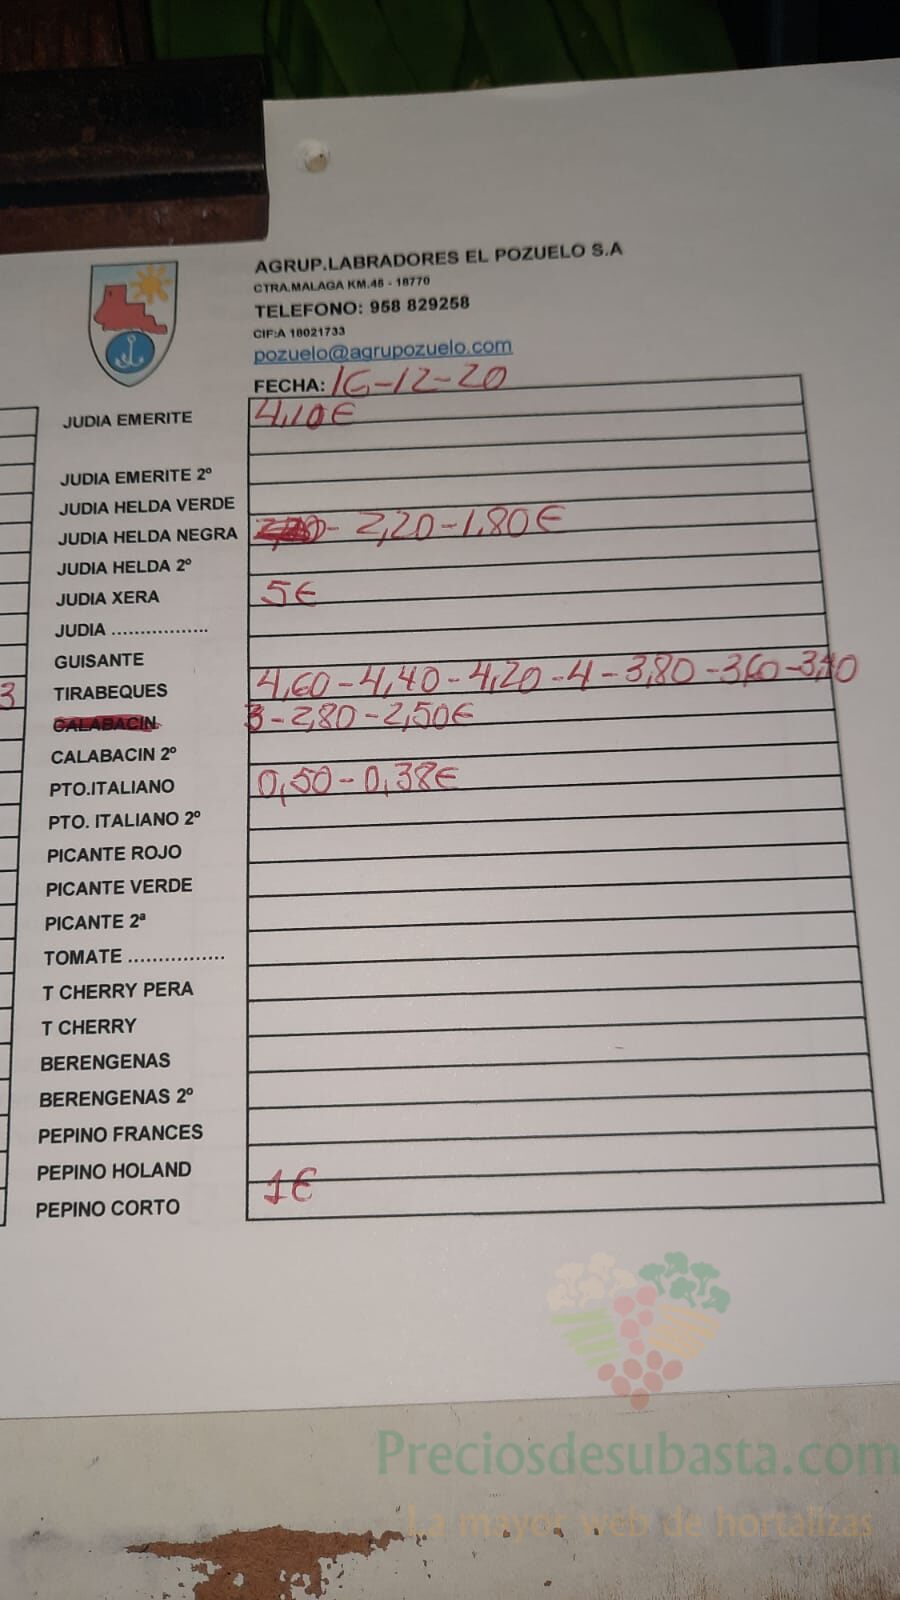 AGRUP.LABRADORES EL POZUELO S.A
CTRA.MALAGA KM.48 - 18770
TELEFONO: 958 829258
CIF:A 18021733
pozuelo@agrupozuelo.com
FECHA: 16-12-20
JUDIA EMERITE 4,10€
JUDIA EMERITE 2º
JUDIA HELDA VERDE
JUDIA HELDA NEGRA - 2,20-1,80€
JUDIA HELDA 2º
JUDIA XERA 5€
JUDIA .................
GUISANTE
3 TIRABEQUES 4,60-4,40-4,20-4-3,80-3,60-3,40
CALABACIN 3-2,80-2,50€
CALABACIN 2º
PTO.ITALIANO 0,50-0,38€
PTO. ITALIANO 2º
PICANTE ROJO
PICANTE VERDE
PICANTE 2ª
TOMATE ................
T CHERRY PERA
T CHERRY
BERENGENAS
BERENGENAS 2º
PEPINO FRANCES
PEPINO HOLAND
PEPINO CORTO 1€
Preciosdesubasta.com
La mayor web de hortalizas